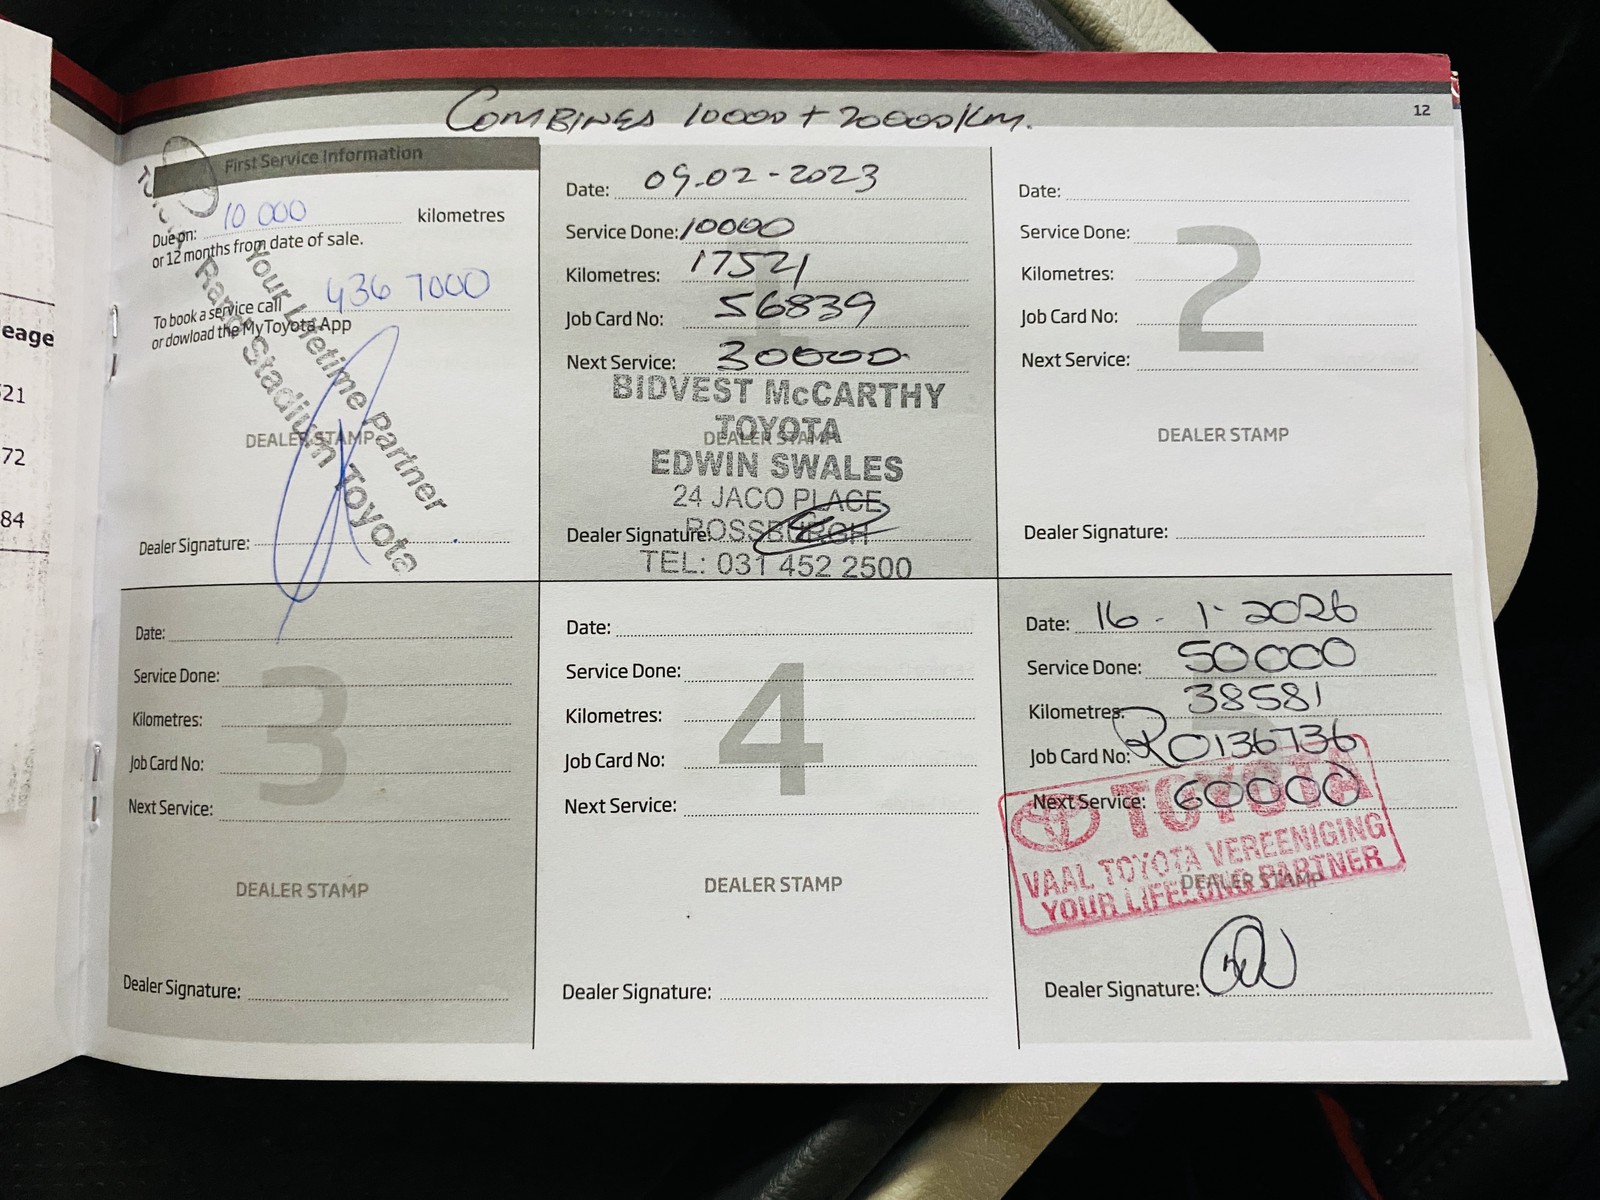 COMBINES 10000 + 20000/KM.
12
First Service Information
Due on: 10 000 kilometres
or 12 months from date of sale.
To book a service call 436 7000
or dowload the MyToyota App
Your Lifetime Partner
Stadium Toyota
DEALER STAMP
Dealer Signature:
1
Date: 09-02-2023
Service Done: 10000
Kilometres: 17521
Job Card No: 56839
Next Service: 30000
BIDVEST McCARTHY
TOYOTA
DEALER STAMP
EDWIN SWALES
24 JACO PLACE
ROSSBURGH
Dealer Signature:
TEL: 031 452 2500
2
Date:
Service Done:
Kilometres:
Job Card No:
Next Service:
DEALER STAMP
Dealer Signature:
eage
21
72
84
3
Date:
Service Done:
Kilometres:
Job Card No:
Next Service:
DEALER STAMP
Dealer Signature:
4
Date:
Service Done:
Kilometres:
Job Card No:
Next Service:
DEALER STAMP
Dealer Signature:
5
Date: 16-1-2026
Service Done: 50000
Kilometres: 38581
Job Card No: R0136736
Next Service: 60000
TOYOTA
VAAL TOYOTA VEREENIGING
YOUR LIFELONG PARTNER
DEALER STAMP
Dealer Signature: